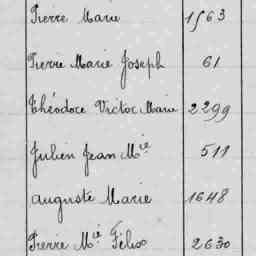 Pierre Marie 1563
Pierre Marie Joseph 61
Théodore Victor Marie 2299
Julien Jean Mie 511
Auguste Marie 1648
Pierre Mie Félix 2630